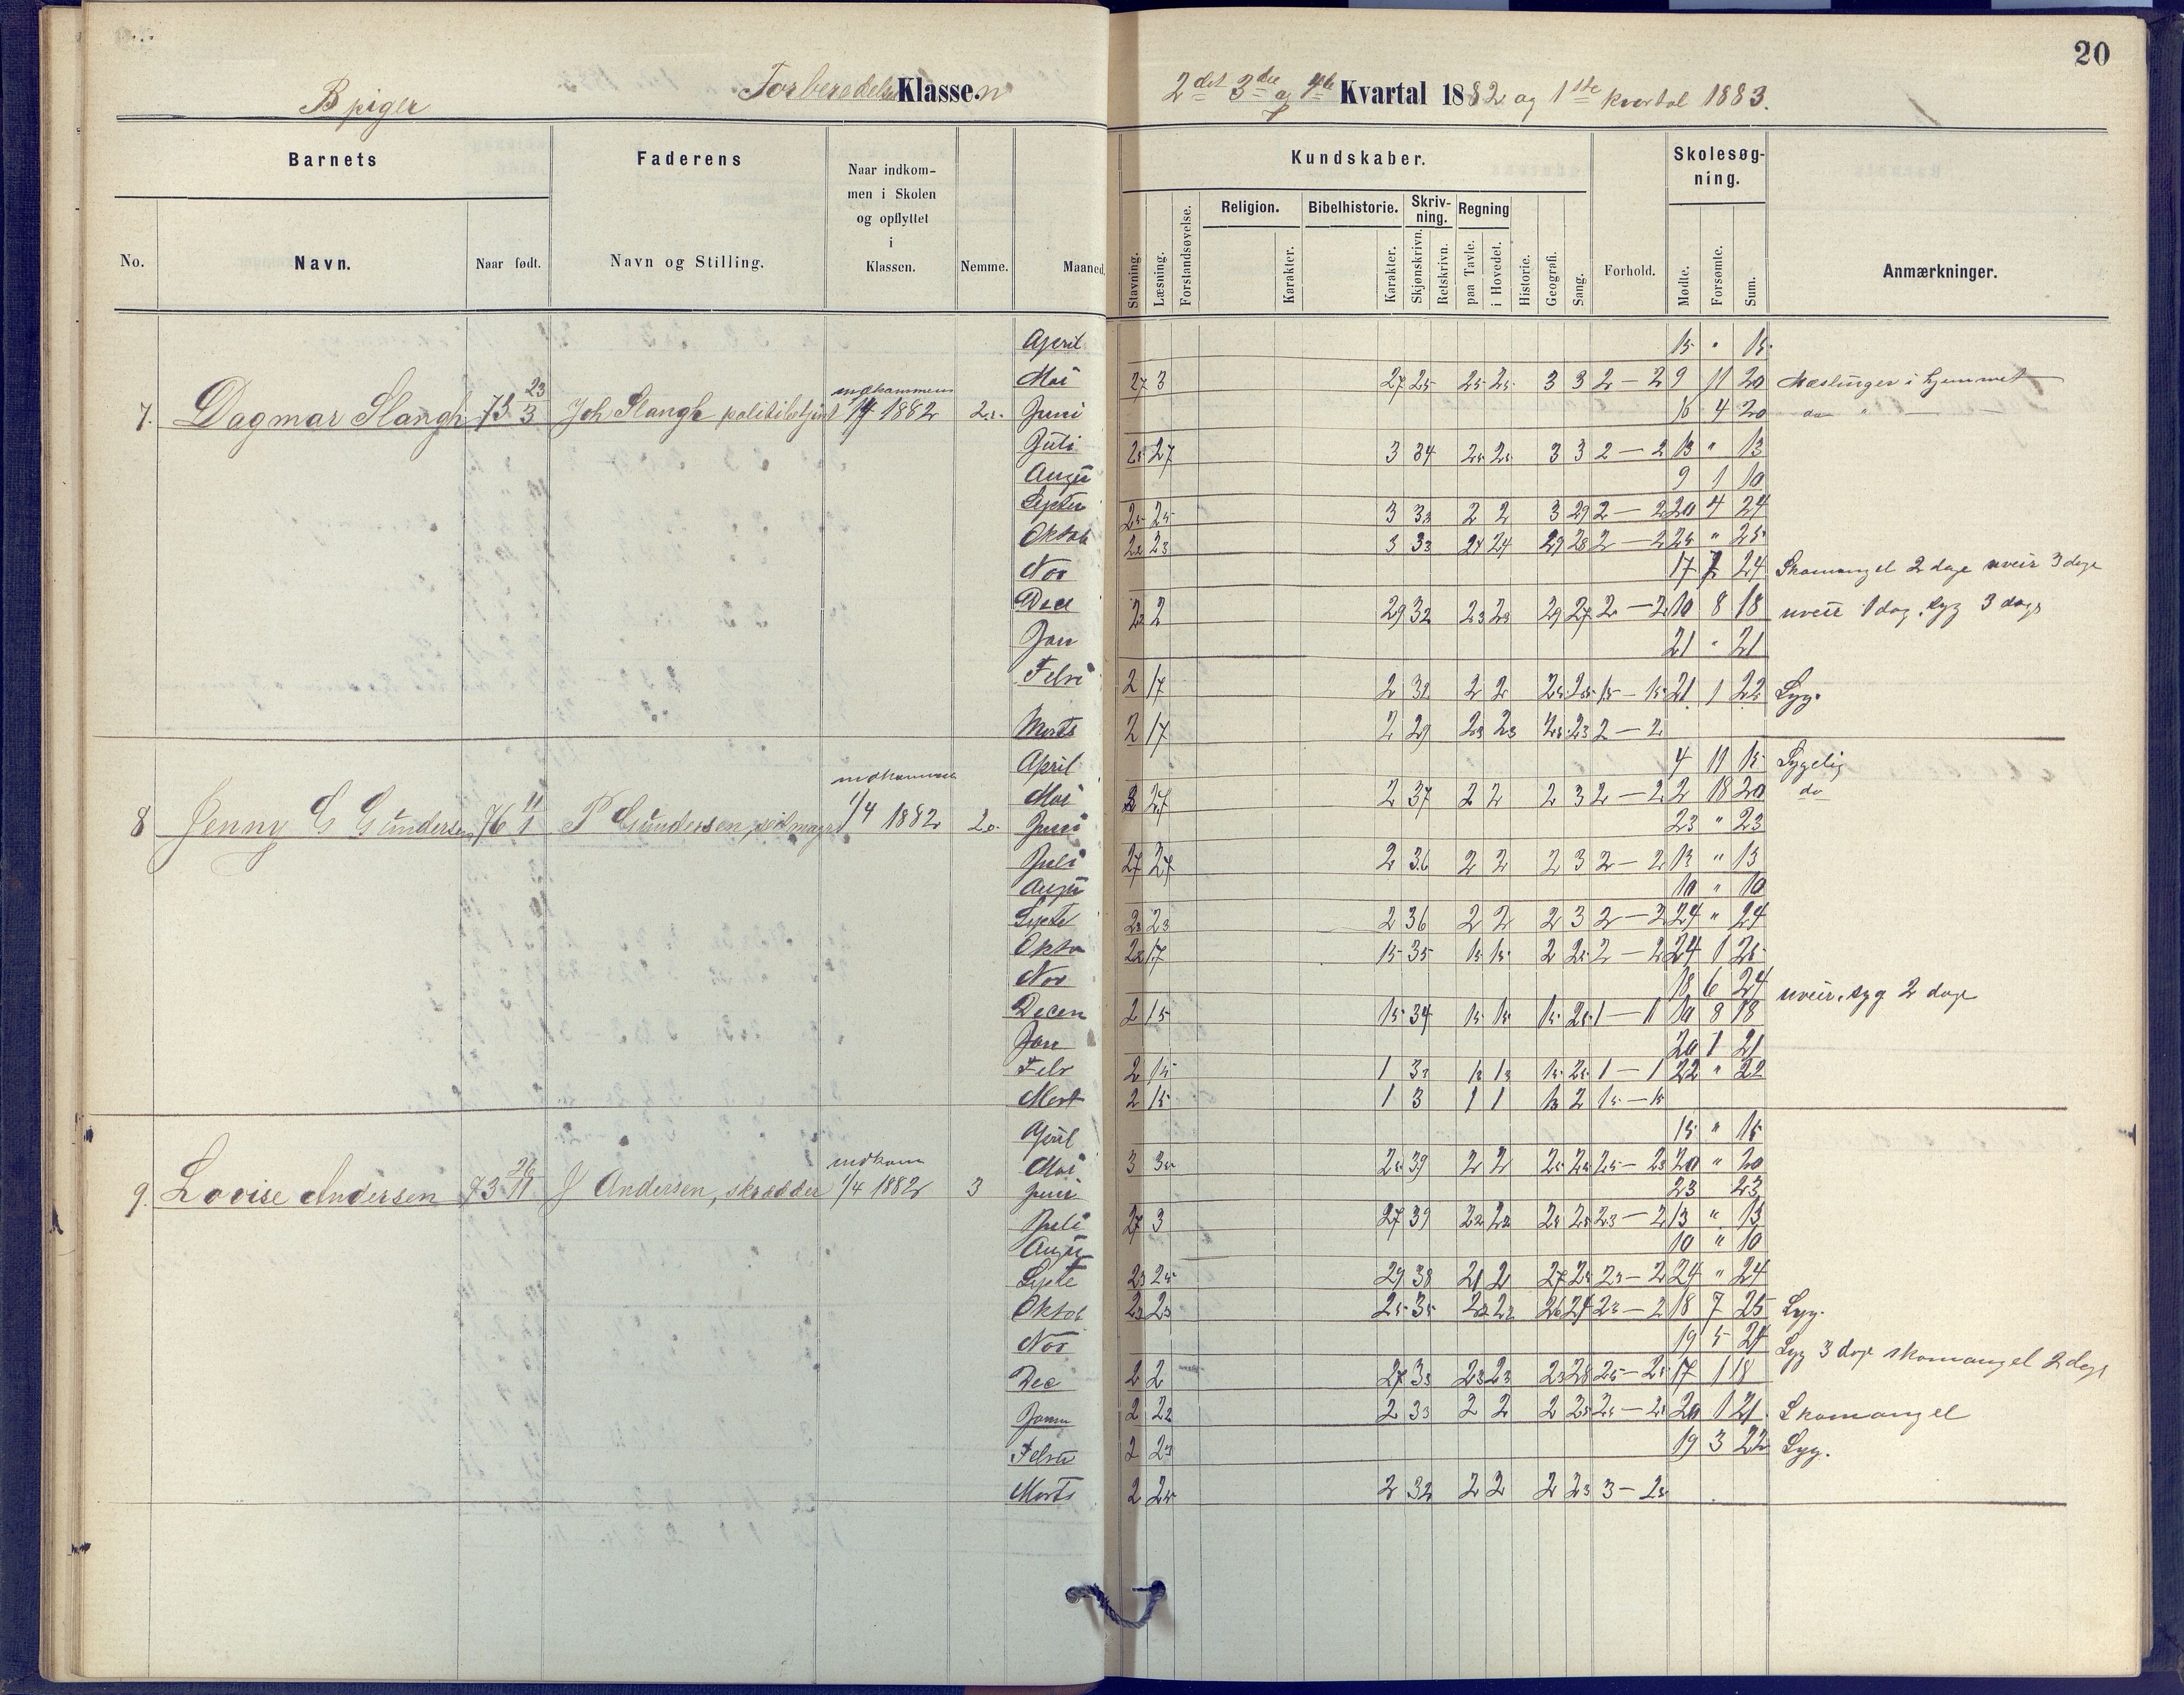 20
B piger Forberedelses Klassen 2det 3die og 4de Kvartal 1882 og 1ste kvartal 1883.
Barnets Faderens Naar indkommen i Skolen og opflyttet i Klassen. Nemme. Maaned. Kundskaber. Skolesøgning.
No. Navn. Naar født. Navn og Stilling. Stavning. Læsning. Forstandsøvelse. Religion. Karakter. Bibelhistorie. Karakter. Skrivning. Skjønskrivn. Retskrivn. Regning paa Tavle. i Hovedet. Historie. Geografi. Sang. Forhold. Mødte. Forsømte. Sum. Anmærkninger.
April 15 " 15
Mai 27 3 27 25 25 25 3 3 2 – 2 9 11 20 Mæslinger i hjemmet
7. Dagmar Slangh 73 23/3 Joh Slangh politibetjent indkommen 1/4 1882 Juni 16 4 20 do
Juli 25 27 3 34 25 25 3 3 2 – 2 13 " 13
Augu 9 1 10
Septer 25 25 3 33 2 2 3 29 2 – 2 20 4 24
Oktob 22 23 3 33 24 24 29 28 2 – 2 25 " 25
Nov 17 7 24 Skomangel 2 dage uveir 3 dage
Dec 22 2 29 32 23 23 29 27 2 – 2 10 8 18 uveir 1 dag, syg 3 dage
Jan 21 " 21
Febr 2 17 2 32 2 2 25 25 15 – 15 21 1 22 Syg.
Marts 2 17 2 29 23 23 23 2 – 2
April 4 11 15 Sygelig
Mai 2 27 2 37 2 2 2 3 2 – 2 2 18 20 do
8 Jenny G Gundersen 76 11/1 P Gundersen, seilmager indkommen 1/4 1882 Juni 23 " 23
Juli 27 27 2 36 2 2 2 3 2 – 2 13 " 13
Augu 10 " 10
Septe 23 23 2 36 2 2 2 3 2 – 2 24 " 24
Okto 22 17 15 35 15 15 2 25 2 – 2 24 1 25
Nov 18 6 24 uveir, syg 2 dage
Decem 2 15 15 34 15 15 15 25 1 – 1 10 8 18
Jan 20 1 21
Febr 2 15 1 33 13 13 15 25 1 – 1 22 " 22
Mart 2 15 1 3 1 1 13 2 15 – 15
April 15 " 15
Mai 3 35 25 39 2 2 25 25 25 – 23 20 " 20
9. Lovise Andersen 73 26/11 J Andersen, skrædder indkom 1/4 1882 3 Juni 23 23
Juli 27 3 27 39 22 22 25 25 23 – 2 13 " 13
Augu 10 " 10
Septe 23 25 29 38 21 2 27 25 23 – 2 24 " 24
Oktob 23 23 25 35 22 22 26 24 23 – 2 18 7 25 Syg.
Nov 19 5 24 Syg 3 dage skomangel 2 dage
Dec 2 2 27 33 23 23 23 28 25 – 25 17 1 18
Janu 2 22 2 33 2 2 2 25 25 – 25 20 1 21 Skomangel
Febru 2 23 19 3 22 Syg.
Marts 2 22 2 32 2 2 2 23 3 – 25